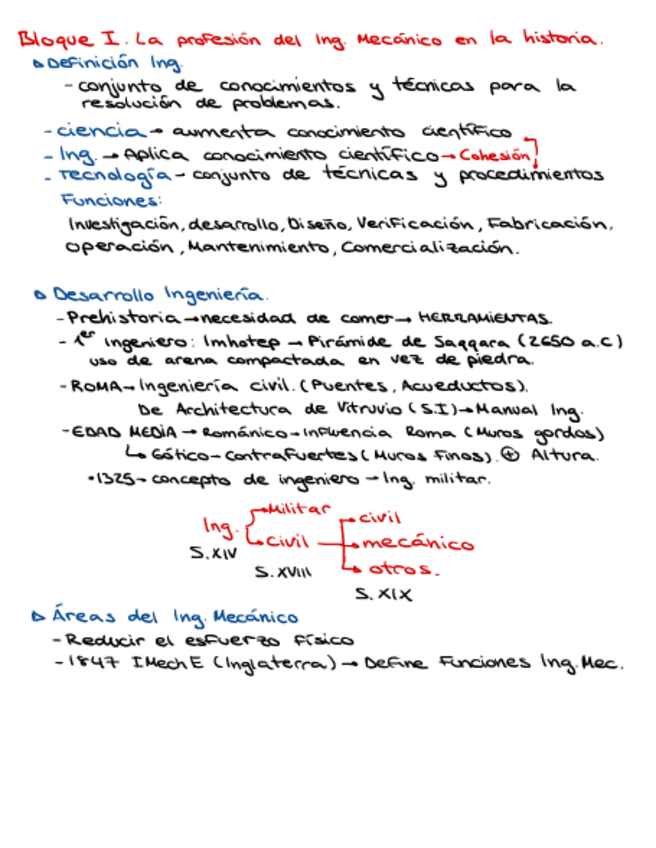 Bloque I. La profesión del Ing. Mecánico en la historia.
▷ Definición Ing.
- conjunto de conocimientos y técnicas para la
resolución de problemas.
- ciencia → aumenta conocimiento científico
- Ing. → Aplica conocimiento científico → Cohesión
- Tecnología - conjunto de técnicas y procedimientos
Funciones:
Investigación, desarrollo, Diseño, Verificación, Fabricación,
operación, Mantenimiento, Comercialización.
▷ Desarrollo Ingeniería.
- Prehistoria → necesidad de comer → HERRAMIENTAS.
- 1er Ingeniero: Imhotep → Pirámide de Saqqara (2650 a.c)
uso de arena compactada en vez de piedra.
- ROMA → Ingeniería civil. (Puentes, Acueductos).
De Architectura de Vitruvio (S.I) → Manual Ing.
- EDAD MEDIA → Románico → Influencia Roma (Muros gordos)
↳ Gótico - Contrafuertes (Muros Finos). ⊕ Altura.
• 1325 - concepto de ingeniero → Ing. militar.
Militar
civil
Ing.
civil
mecánico
S.XIV
otros.
S.XVIII
S.XIX
▷ Áreas del Ing. Mecánico
- Reducir el esfuerzo físico
- 1847 IMechE (Inglaterra) → Define Funciones Ing. Mec.